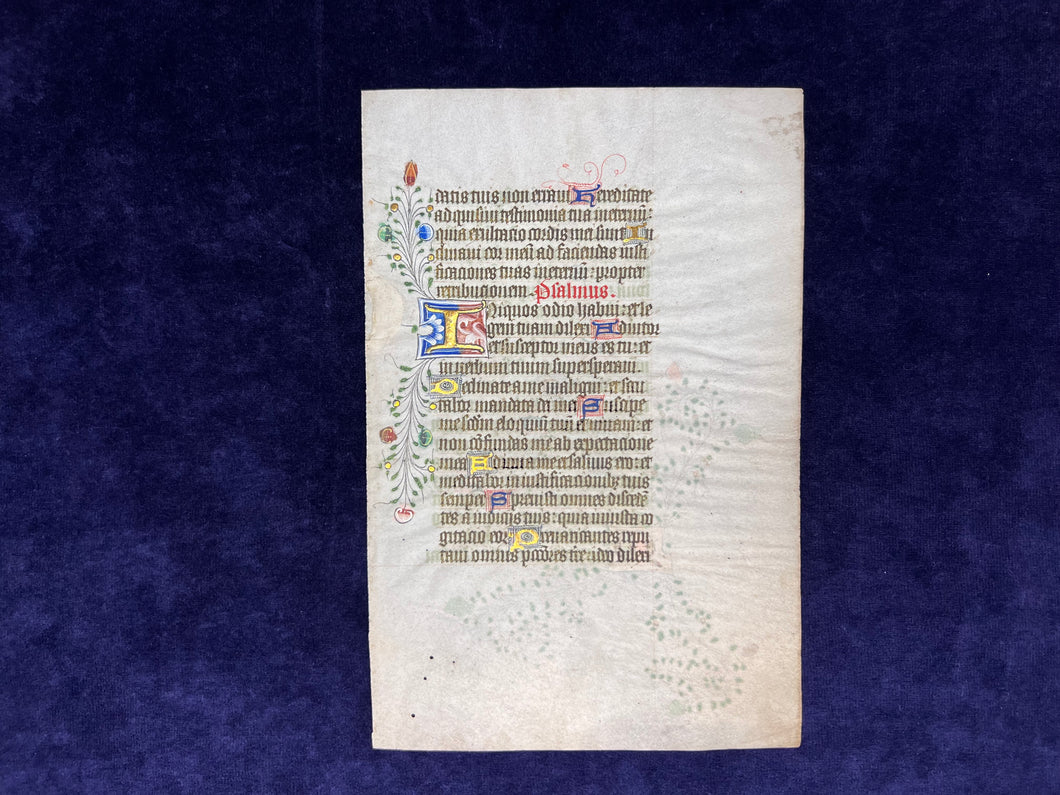 datis tuis non erraui Hereditate
adquisiui testimonia tua ineternũ:
quia exultacio cordis mei sunt In
clinaui cor meũ ad faciendas iusti
ficaciones tuas ineternũ: propter
retribucionem. Psalmus.
INiquos odio habui: et le
gem tuam dilexi Adiutor
et susceptor meus es tu: et
in uerbum tuum supersperaui.
Declinate a me maligni: et scru
tabor mandata dei mei Suscipe
me scďm eloquiũ tuũ et uiuam: et
non cõfundas me ab expectacione
mea Adiuua me et saluus ero: et
meditabor in iustificacionibꝫ tuis
semper Spreuisti omnes disceďẽ
tes a iudiciis tuis: quia iniusta co
gitacio eoꝝ Preuaricantes repu
taui omnes pctõres tr̃e: ideo dilexi